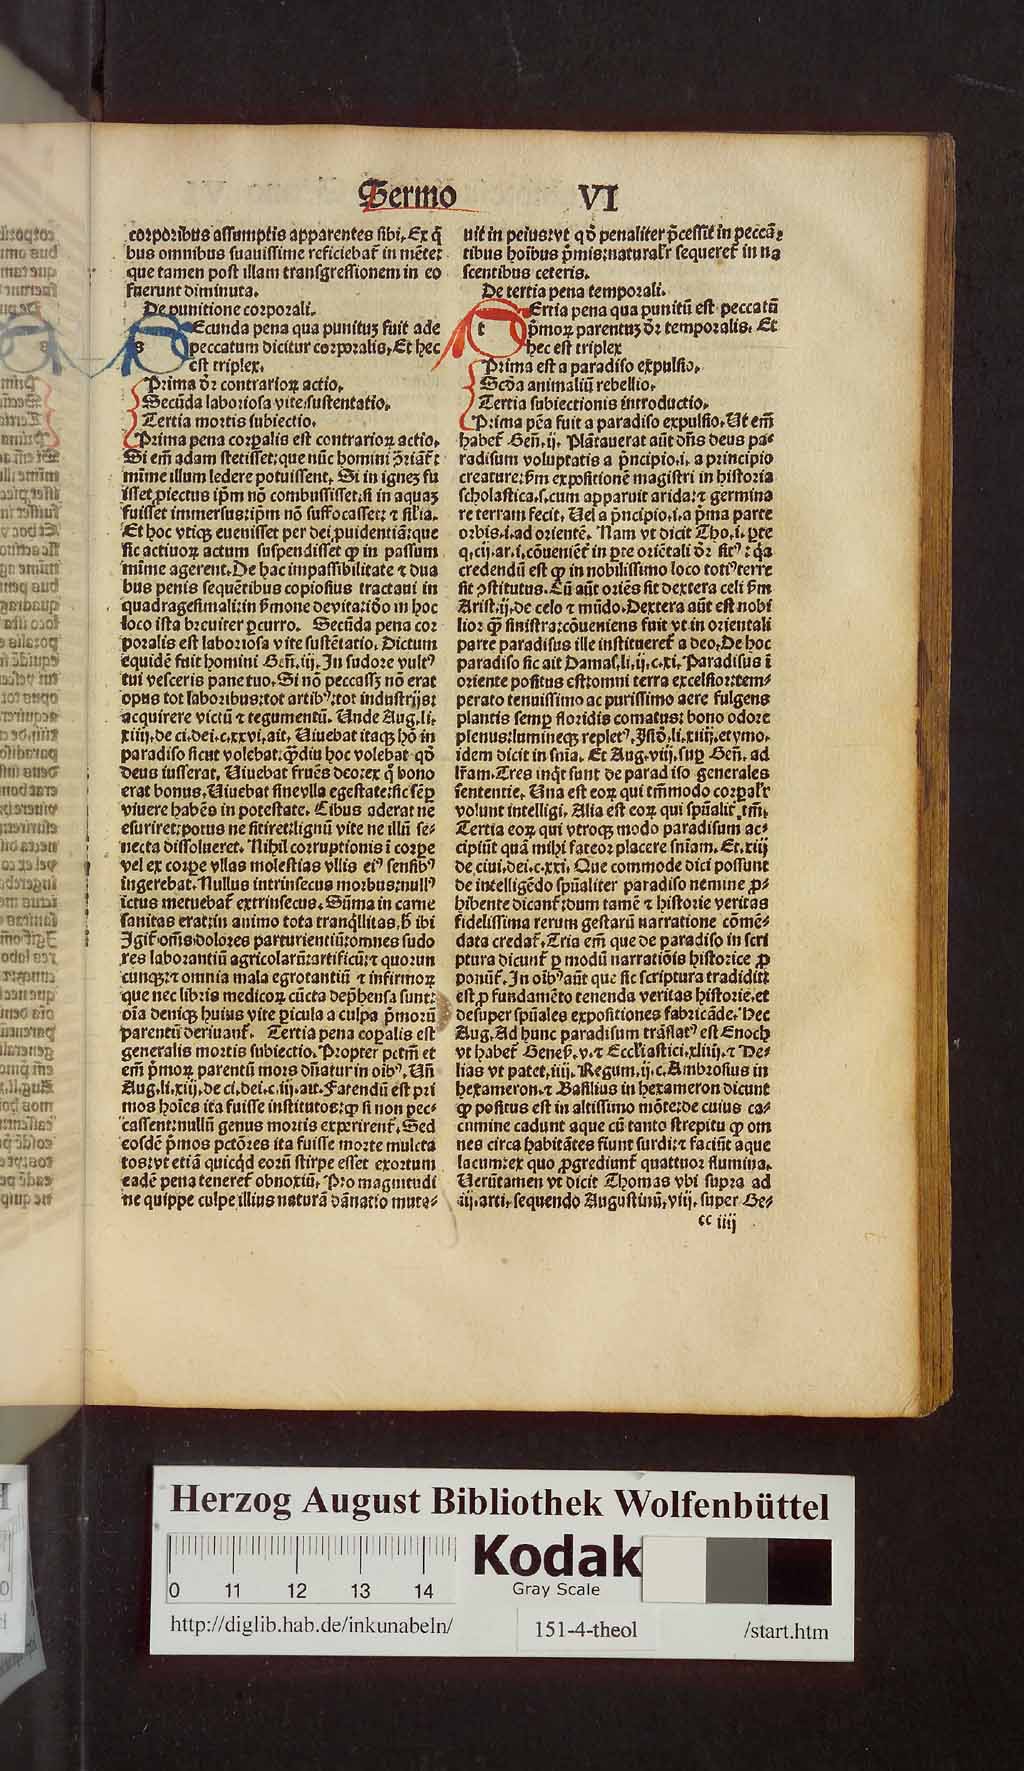 Sermo VI
corporibus assumptis apparentes sibi. Ex q̃
bus omnibus suauissime reficiebat̃ in mẽte:
que tamen post illam transgressionem in eo
fuerunt diminuta.
De punitione corporali.
Ecunda pena qua punituꝫ fuit ade
s peccatum dicitur corporalis. Et hec
est triplex.
Prima dr̃ contrarioꝝ actio.
Secũda laboriosa vite sustentatio.
Tertia mortis subiectio.
Prima pena corꝑalis est contrarioꝝ actio.
Si em̃ adam stetisset: que nũc homini ꝯ̃riãt̃
mĩme illum ledere potuissent. Si in igneꝫ fu
isset ꝓiectus ip̃m nõ combussisset: si in aquaꝫ
fuisset immersus: ip̃m nõ suffocasset: ⁊ sil̃ia.
Et hoc vtiqꝫ euenisset per dei ꝓuidentiã: que
sic actiuoꝝ actum suspendisset ꝙ in passum
mĩme agerent. De hac impassibilitate ⁊ dua
bus penis sequẽtibus copiosius tractaui in
quadragesimali: in ẜmone de vita: iðo in hoc
loco ista breuiter ꝑcurro. Secũda pena cor
poralis est laboriosa vite sustẽtatio. Dictum
equidẽ fuit homini Geñ. iij. In sudore vultꝰ
tui vesceris pane tuo. Si nõ peccassꝫ nõ erat
opus tot laboribus: tot artibꝰ: tot industrijs:
acquirere victũ ⁊ tegumentũ. Unde Aug. li.
xiiij. de ci. dei. c. xxvi. ait. Uiuebat itaqꝫ hõ in
paradiso sicut volebat: ꝙ̃diu hoc volebat qð
deus iusserat. Uiuebat fruẽs deo: ex q̃ bono
erat bonus. Uiuebat sine vlla egestate: sic sẽꝑ
viuere habẽs in potestate. Cibus aderat ne
esuriret: potus ne sitiret: lignũ vite ne illũ se-
necta dissolueret. Nihil corruptionis ĩ corꝑe
vel ex corꝑe vllas molestias vllis eiꝰ sensibꝰ
ingerebat. Nullus intrinsecus morbus: nullꝰ
ictus metuebat̃ extrinsecus. Sũma in carne
sanitas erat: in animo tota tranq̃llitas. h̃ ibi
Igit̃ om̃s dolores parturientiũ: omnes sudo
res laborantiũ agricolarũ: artificũ: ⁊ quorun
cunqꝫ: ⁊ omnia mala egrotantiũ ⁊ infirmoꝝ
que nec libris medicoꝝ cũcta dep̃hensa sunt:
oĩa deniqꝫ huius vite ꝑicula a culpa p̃morũ
parentũ deriuant̃. Tertia pena corꝑalis est
generalis mortis subiectio. Propter pctm̃ et
em̃ p̃moꝝ parentũ mors dñatur in oibꝰ. Uñ
Aug. li. xiij. de ci. dei. c. iij. ait. Fatendũ est pri
mos hoĩes ita fuisse institutos: ꝙ si non pec-
cassent: nullũ genus mortis experirent̃. Sed
eosdẽ p̃mos pctõres ita fuisse morte mulcta
tos: vt etiã quicq̃d eorũ stirpe esset exortum
eadẽ pena teneret̃ obnoxiũ. Pro magnitudi
ne quippe culpe illius naturã dãnatio muta-
uit in peius: vt qð penaliter p̃cessit in peccã-
tibus hoĩbus p̃mis: naturalr̃ sequeret̃ in na
scentibus ceteris.
De tertia pena temporali.
Ertia pena qua punitũ est peccatũ
t p̃moꝝ parentuꝫ dr̃ temporalis. Et
hec est triplex
Prima est a paradiso expulsio.
Scða animaliũ rebellio.
Tertia subiectionis introductio.
Prima pẽa fuit a paradiso expulsio. Ut em̃
habet̃ Geñ. ij. Plãtauerat aũt dñs deus pa-
radisum voluptatis a p̃ncipio. i. a principio
creature: ẜm expositionẽ magistri in historia
scholastica. s. cum apparuit arida: ⁊ germina
re terram fecit. Uel a p̃ncipio. i. a p̃ma parte
orbis. i. ad orientẽ. Nam vt dicit Tho. i. ꝑte
q. cij. ar. i. cõueniẽt̃ in ꝑte oriẽtali dr̃ sitꝰ: q̃a
credendũ est ꝙ in nobilissimo loco totiꝰ terre
sit ꝯstitutus. Cũ aũt oriẽs sit dextera celi ẜm
Arist. ij. de celo ⁊ mũdo. Dextera aũt est nobi
lior ꝙ̃ sinistra: cõueniens fuit vt in orientali
parte paradisus ille institueret̃ a deo. De hoc
paradiso sic ait Damas. li. ij. c. xi. Paradisus ĩ
oriente positus est: omni terra excelsior: tem-
perato tenuissimo ac purissimo aere fulgens
plantis semꝑ floridis comatus: bono odore
plenus: lumineqꝫ repletꝰ. Isið. li. xiiij. etymo.
idem dicit in sñia. Et Aug. viij. suꝑ Geñ. ad
lr̃am. Tres inq̃t sunt de paradiso generales
sententie. Una est eoꝝ qui tm̃modo corꝑalr̃
volunt intelligi. Alia est eoꝝ qui spũalit̃ tm̃.
Tertia eoꝝ qui vtroqꝫ modo paradisum ac-
cipiũt quã mihi fateor placere sñiam. Et. xiij
de ciui. dei. c. xxi. Que commode dici possunt
de intelligẽdo spũaliter paradiso nemine ꝓ-
hibente dicant̃: dum tamẽ ⁊ historie veritas
fidelissima rerum gestarũ narratione cõmẽ-
data credat̃. Tria em̃ que de paradiso in scri
ptura dicunt̃ ꝑ modũ narratiõis historice ꝓ
ponũt̃. In oĩbꝰ aũt que sic scriptura tradidit:
est ꝓ fundamẽto tenenda veritas historie. et
desuper spũales expositiones fabricãde. Hec
Aug. Ad hunc paradisum trãslatꝰ est Enoch
vt habet̃ Geneẜ. v. ⁊ Eccl̃iastici. xliiij. ⁊ He-
lias vt patet. iiij. Regum. ij. c. Ambrosius in
hexameron. ⁊ Basilius in hexameron dicunt
ꝙ positus est in altissimo mõte: de cuius ca-
cumine cadunt aque cũ tanto strepitu ꝙ om
nes circa habitãtes fiunt surdi: ⁊ faciũt aque
lacum: ex quo ꝓgrediunt̃ quattuor flumina.
Uerũtamen vt dicit Thomas vbi supra ad
.ij. arti. sequendo Augustinũ. viij. super Ge-
cc iiij
Herzog August Bibliothek Wolfenbüttel
0 11 12 13 14
Kodak
Gray Scale
http://diglib.hab.de/inkunabeln/ 151-4-theol /start.htm